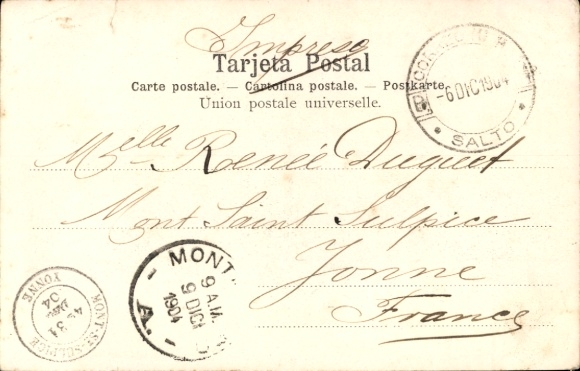 Impreso
Tarjeta Postal
Carte postale. — Cartolina postale. — Postkarte.
Union postale universelle.
-6 DIC 1904
SALTO
Mlle Renée Duguet
Mont Saint Sulpice
Yonne
France
MONT
9 A.M.
9 DIC
1904
A.
MONT-ST-SULPICE
31
04
YONNE